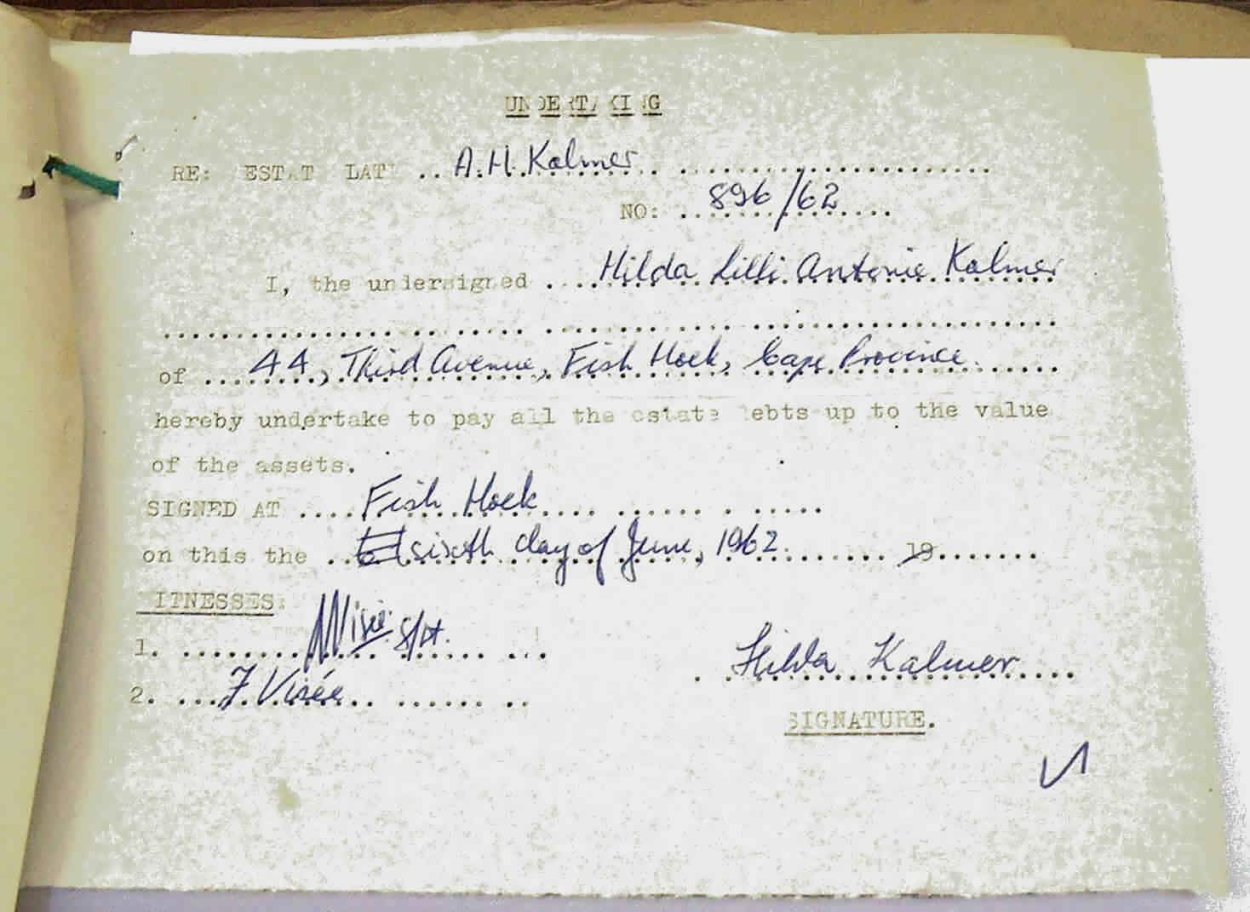 UNDERTAKING
RE: ESTAT LAT .. A.H. Kalmer
NO: 896/62
I, the undersigned .... Hilda Lilli Antonie Kalmer
of .... 44, Third Avenue, Fish Hoek, Cape Province.
hereby undertake to pay all the estate debts up to the value
of the assets.
SIGNED AT .... Fish Hoek
on this the .. sixth day of June, 1962 ........ 19.......
ITNESSES:
1.
2. ... F. Visée
Hilda Kalmer
SIGNATURE.